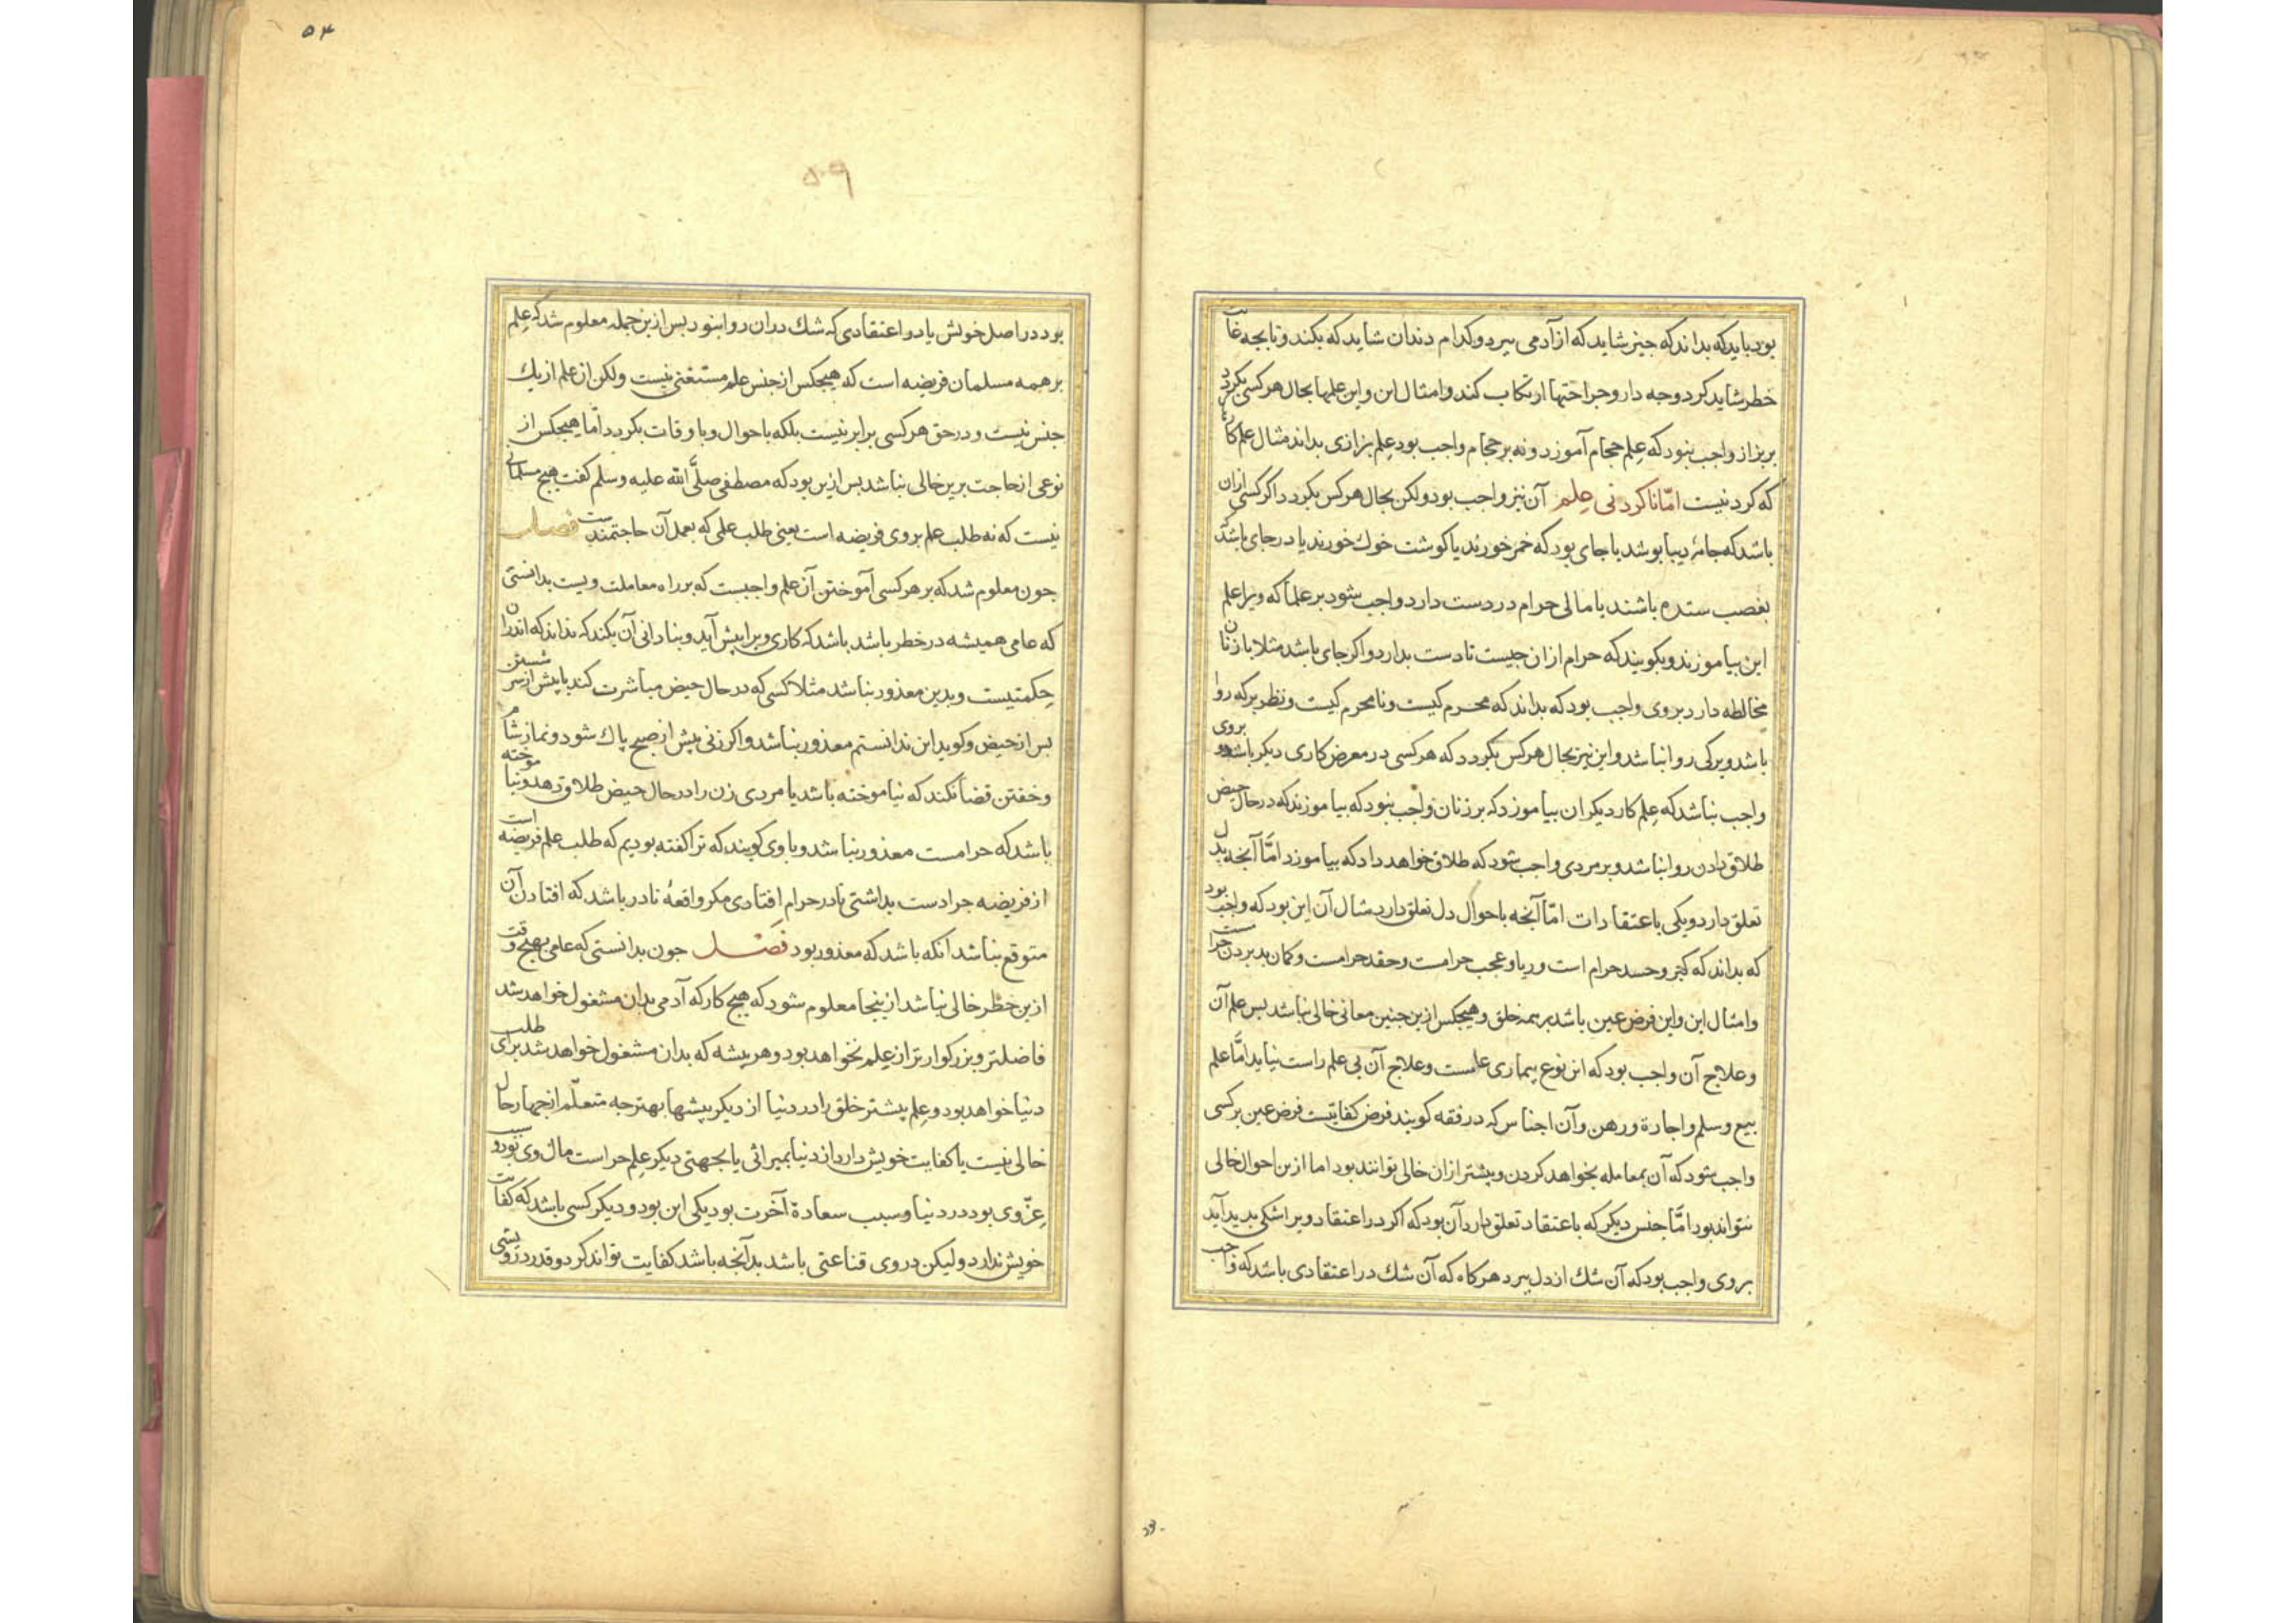 بود باید که بداند که چیز شاید که از آدمی ببرد و کدام دندان شاید که بکند و تا بجه غایت
خطر شاید کرد و جه دارو جراحتها ارتکاب کند و امثال این و این علمها بحال هر کسی بکردد
بر بزاز واجب نبود که علم حجام آموزد و نه بر حجام واجب بود علم بزازی بداند مثال علم کارها
که کردنیست اما ناکردنی علم آن نیز واجب بود ولکن بحال هر کس بکردد اکر کسی ازان
باشد که جامۀ دیبا بوشد یا جای بود که خمر خورند یا کوشت خوك خورند یا در جای باشد که
بغصب ستده باشند یا مالی حرام در دست دارد واجب شود بر علما که ویرا علم
این بیاموزند و بکویند که حرام ازان جیست تا دست بدارد و اکر جای باشد مثلا با زنان
مخالطه دارد بر وی واجب بود که بداند که محرم کیست و نامحرم کیست و نظر بر که روا
باشد و بر کی روا نباشد و این نیز بحال هر کس بکردد که هر کسی در معرض کاری دیکر باشد و بر وی
واجب نباشد که علم کار دیکران بیاموزد که بر زنان واجب نبود که بیاموزند که در حال حیض
طلاق دادن روا نباشد و بر مردی واجب شود که طلاق خواهد داد که بیاموزد امّا آنجه بدل
تعلق دارد و یکی باعتقادات امّا آنجه باحوال دل تعلق دارد مثال آن این بود که واجب بود
که بداند که کبر و حسد حرام است و ریا و عجب حرامست و حقد حرامست و کمان بد بردن حرامست
و امثال این و این فرض عین باشد بر همه خلق و هیجکس ازین جنین معانی خالی نباشد بس علم آن
و علاج آن واجب بود که این نوع بیماری عامست و علاج آن بی علم راست نیاید امّا علم
بیع و سلم و اجارة و رهن و آن اجناس که در فقه کویند فرض کفایتست فرض عین بر کسی
واجب شود که آن بمعامله بخواهد کردن و بیشتر ازان خالی توانند بود اما ازین احوال خالی
نتواند بود امّا جنس دیکر که باعتقاد تعلق دارد آن بود که اکر در اعتقاد ویرا شکی بدید آید
بر وی واجب بود که آن شك از دل ببرد هر کاه که آن شك در اعتقادی باشد که واجب
بود
۵۴
۵۹
بود در اصل خویش یا در اعتقادی که شك در ان روا نبود بس ازین جمله معلوم شد که علم
بر همه مسلمان فریضه است که هیجکس از جنس علم مستغنی نیست ولکن از علم از یك
جنس نیست و در حق هر کسی برابر نیست بلکه باحوال و باوقات بکردد امّا هیجکس از
نوعی از حاجت برین خالی نباشد بس ازین بود که مصطفی صلّی الله علیه وسلم کفت هیج مسلمانی
نیست که نه طلب علم بر وی فریضه است یعنی طلب علمی که بعمل آن حاجتمندست فصل
جون معلوم شد که بر هر کسی آموختن آن علم واجبست که بر راه معاملت ویست بدانستی
که عامی همیشه در خطر باشد باشد که کاری ویرا بیش آید و بنادانی آن بکند که نداند که اندران
حکمتیست و بدین معذور نباشد مثلا کسی که در حال حیض مباشرت کند یا پیش از سر شستن
بس از حیض و کوید این ندانستم معذور نباشد و اکر زنی پیش از صبح پاك شود و نماز شام
و خفتن قضا نکند که نیاموخته باشد یا مردی زن را در حال حیض طلاق دهد و نیاموخته
باشد که حرامست معذور نباشد و با وی کویند که ترا کفته بودیم که طلب علم فریضه است
از فریضه جرا دست بداشتی تا در حرام افتادی مکر واقعۀ نادر باشد که افتادن آن
متوقع نباشد آنکه باشد که معذور بود فصل جون بدانستی که عامی بهیج وقت
ازین خطر خالی نباشد ازینجا معلوم شود که هیج کار که آدمی بدان مشغول خواهد شد
فاضلتر و بزرکوارتر از علم نخواهد بود و هر پیشه که بدان مشغول خواهد شد برای طلب
دنیا خواهد بود و علم بیشتر خلق را در دنیا از دیکر پیشها بهتر جه متعلّم از جهار حال
خالی نیست یا کفایت خویش دارد از دنیا بمیراثی یا بجهتی دیکر علم حراست مال وی بود و سبب
عزّ وی بود در دنیا و سبب سعادة آخرت بود یکی این بود و دیکر کسی باشد که کفایت
خویش ندارد ولیکن در وی قناعتی باشد بدانجه باشد کفایت تواند کرد و قدر درویشی